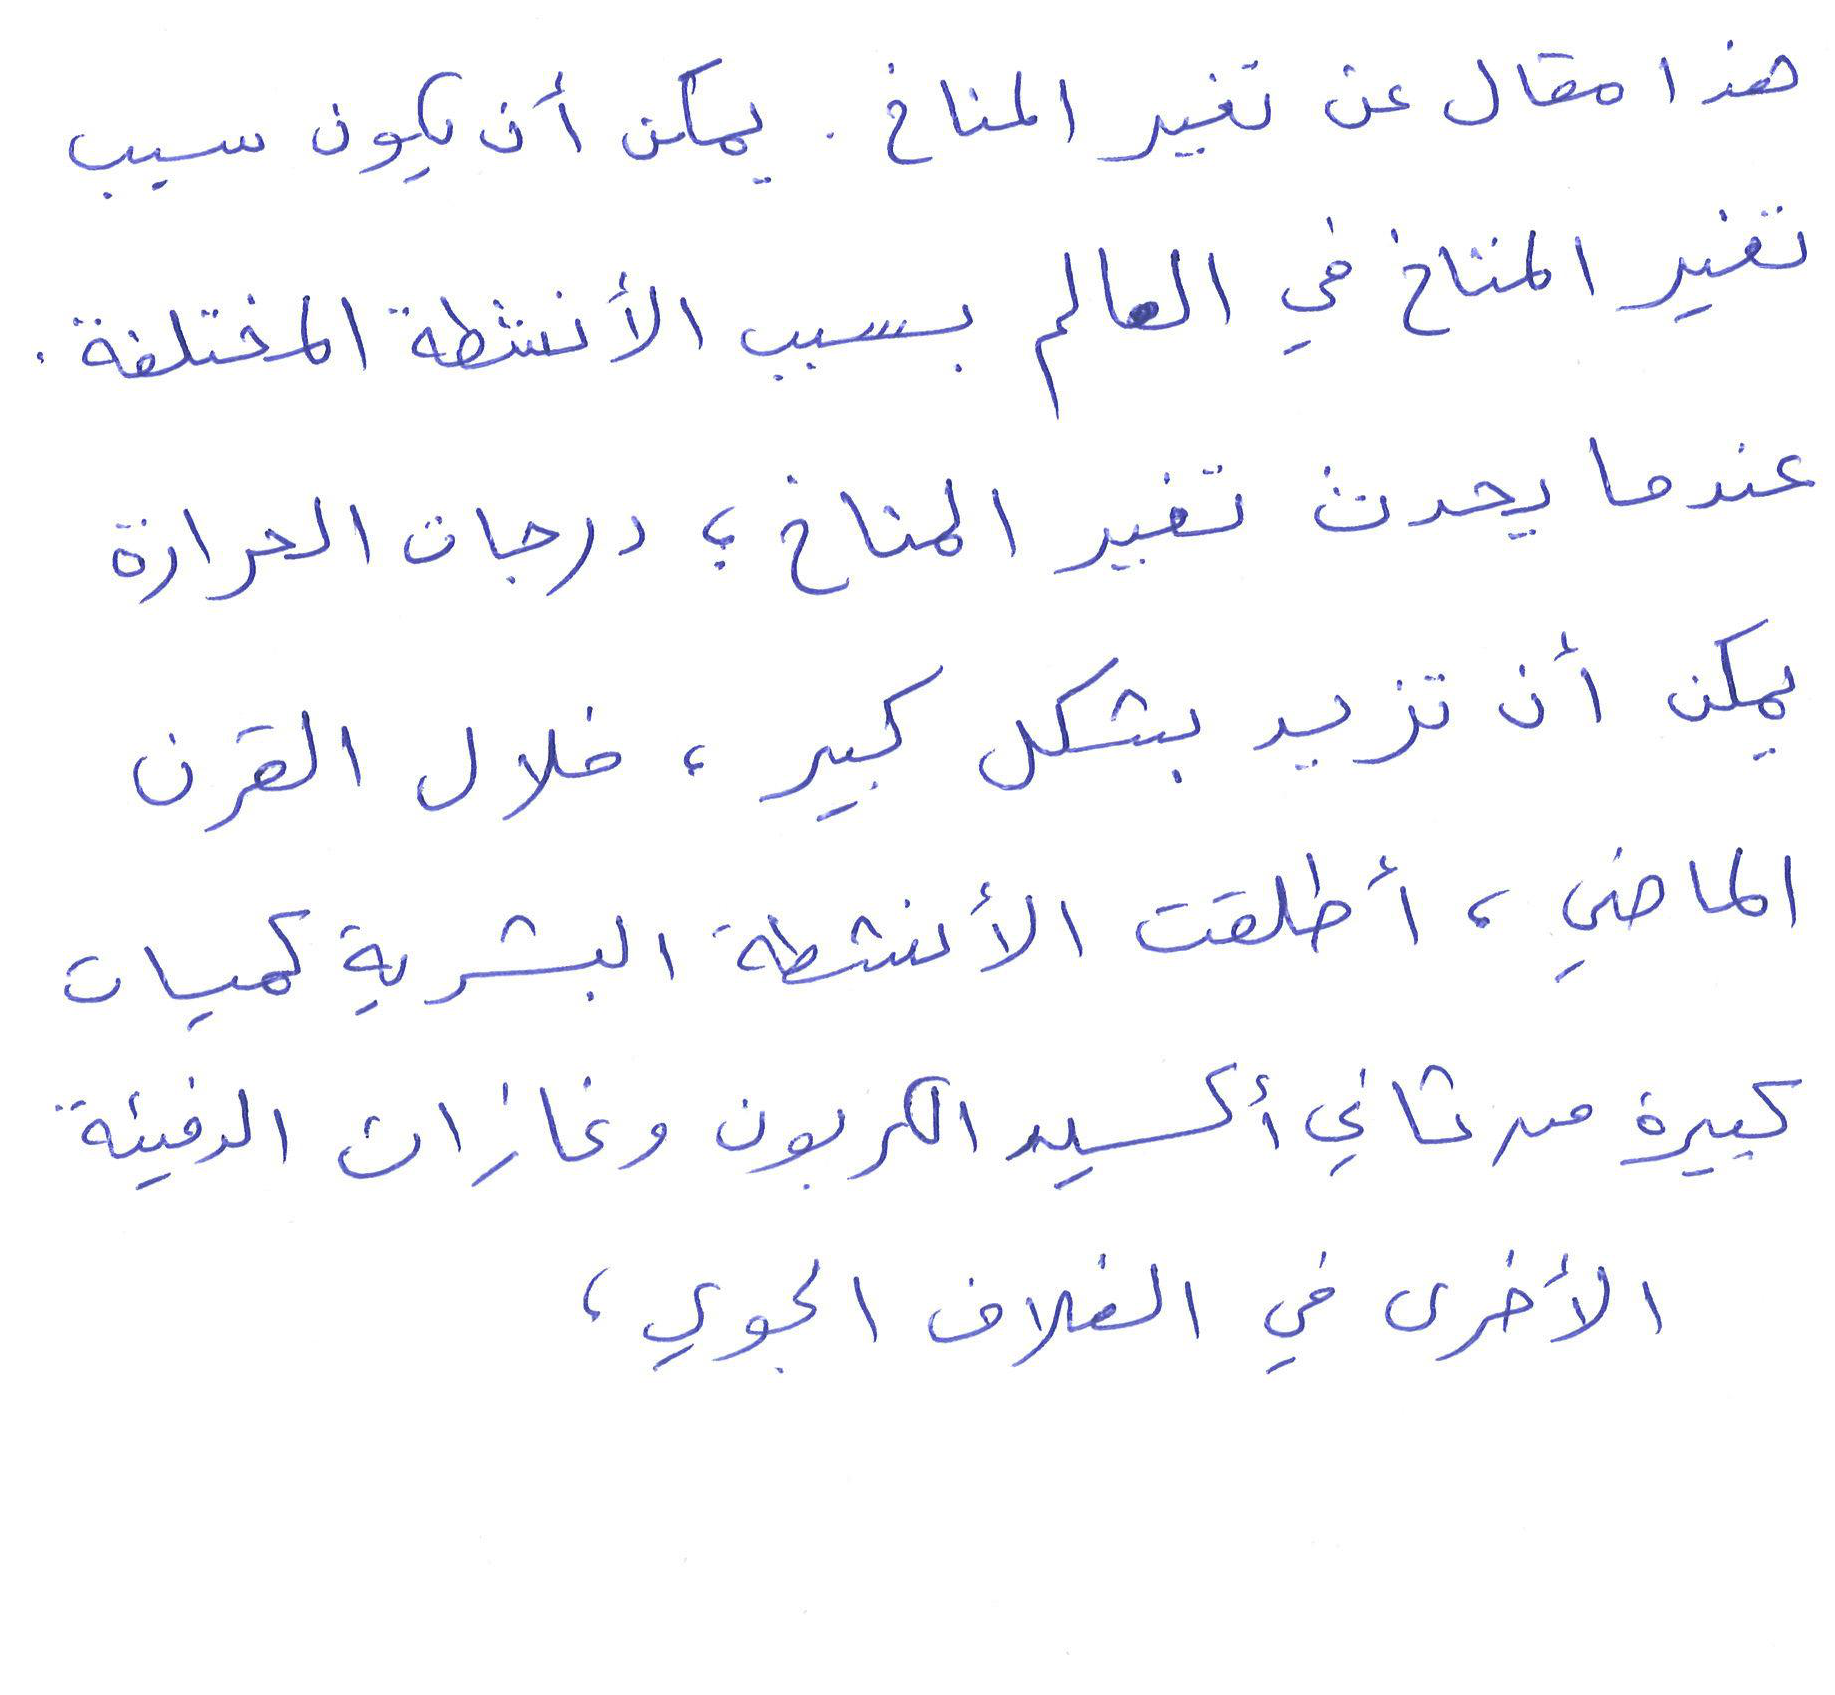 هذا مقال عن تغير المناخ . يمكن أن يكون سبب
تغير المناخ في العالم بسبب الأنشطة المختلفة .
عندما يحدث تغير المناخ ؛ درجات الحرارة
يمكن أن تزيد بشكل كبير ، خلال القرن
الماضي ، أطلقت الأنشطة البشرية كميات
كبيرة من ثاني أكسيد الكربون وغازات الدفيئة
الأخرى في الغلاف الجوي ،